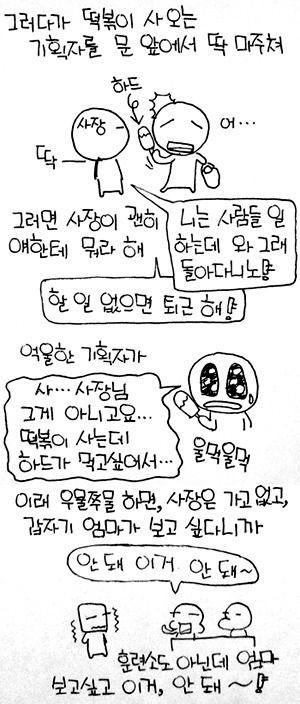 그러다가 떡볶이 사 오는
기획자를 문 앞에서 딱 마주쳐
하드
사장
어…
딱
그러면 사장이 괜히
얘한테 뭐라 해
니는 사람들 일
하는데 와 그래
돌아다니노!
할 일 없으면 퇴근 해!
억울한 기획자가
사… 사장님
그게 아니고요…
떡볶이 사는데
하드가 먹고싶어서…
울먹울먹
이래 우물쭈물 하면, 사장은 가고 없고,
갑자기 엄마가 보고 싶다니까
안 돼 이거. 안 돼~
훈련소도 아닌데 엄마
보고싶고 이거, 안 돼~!